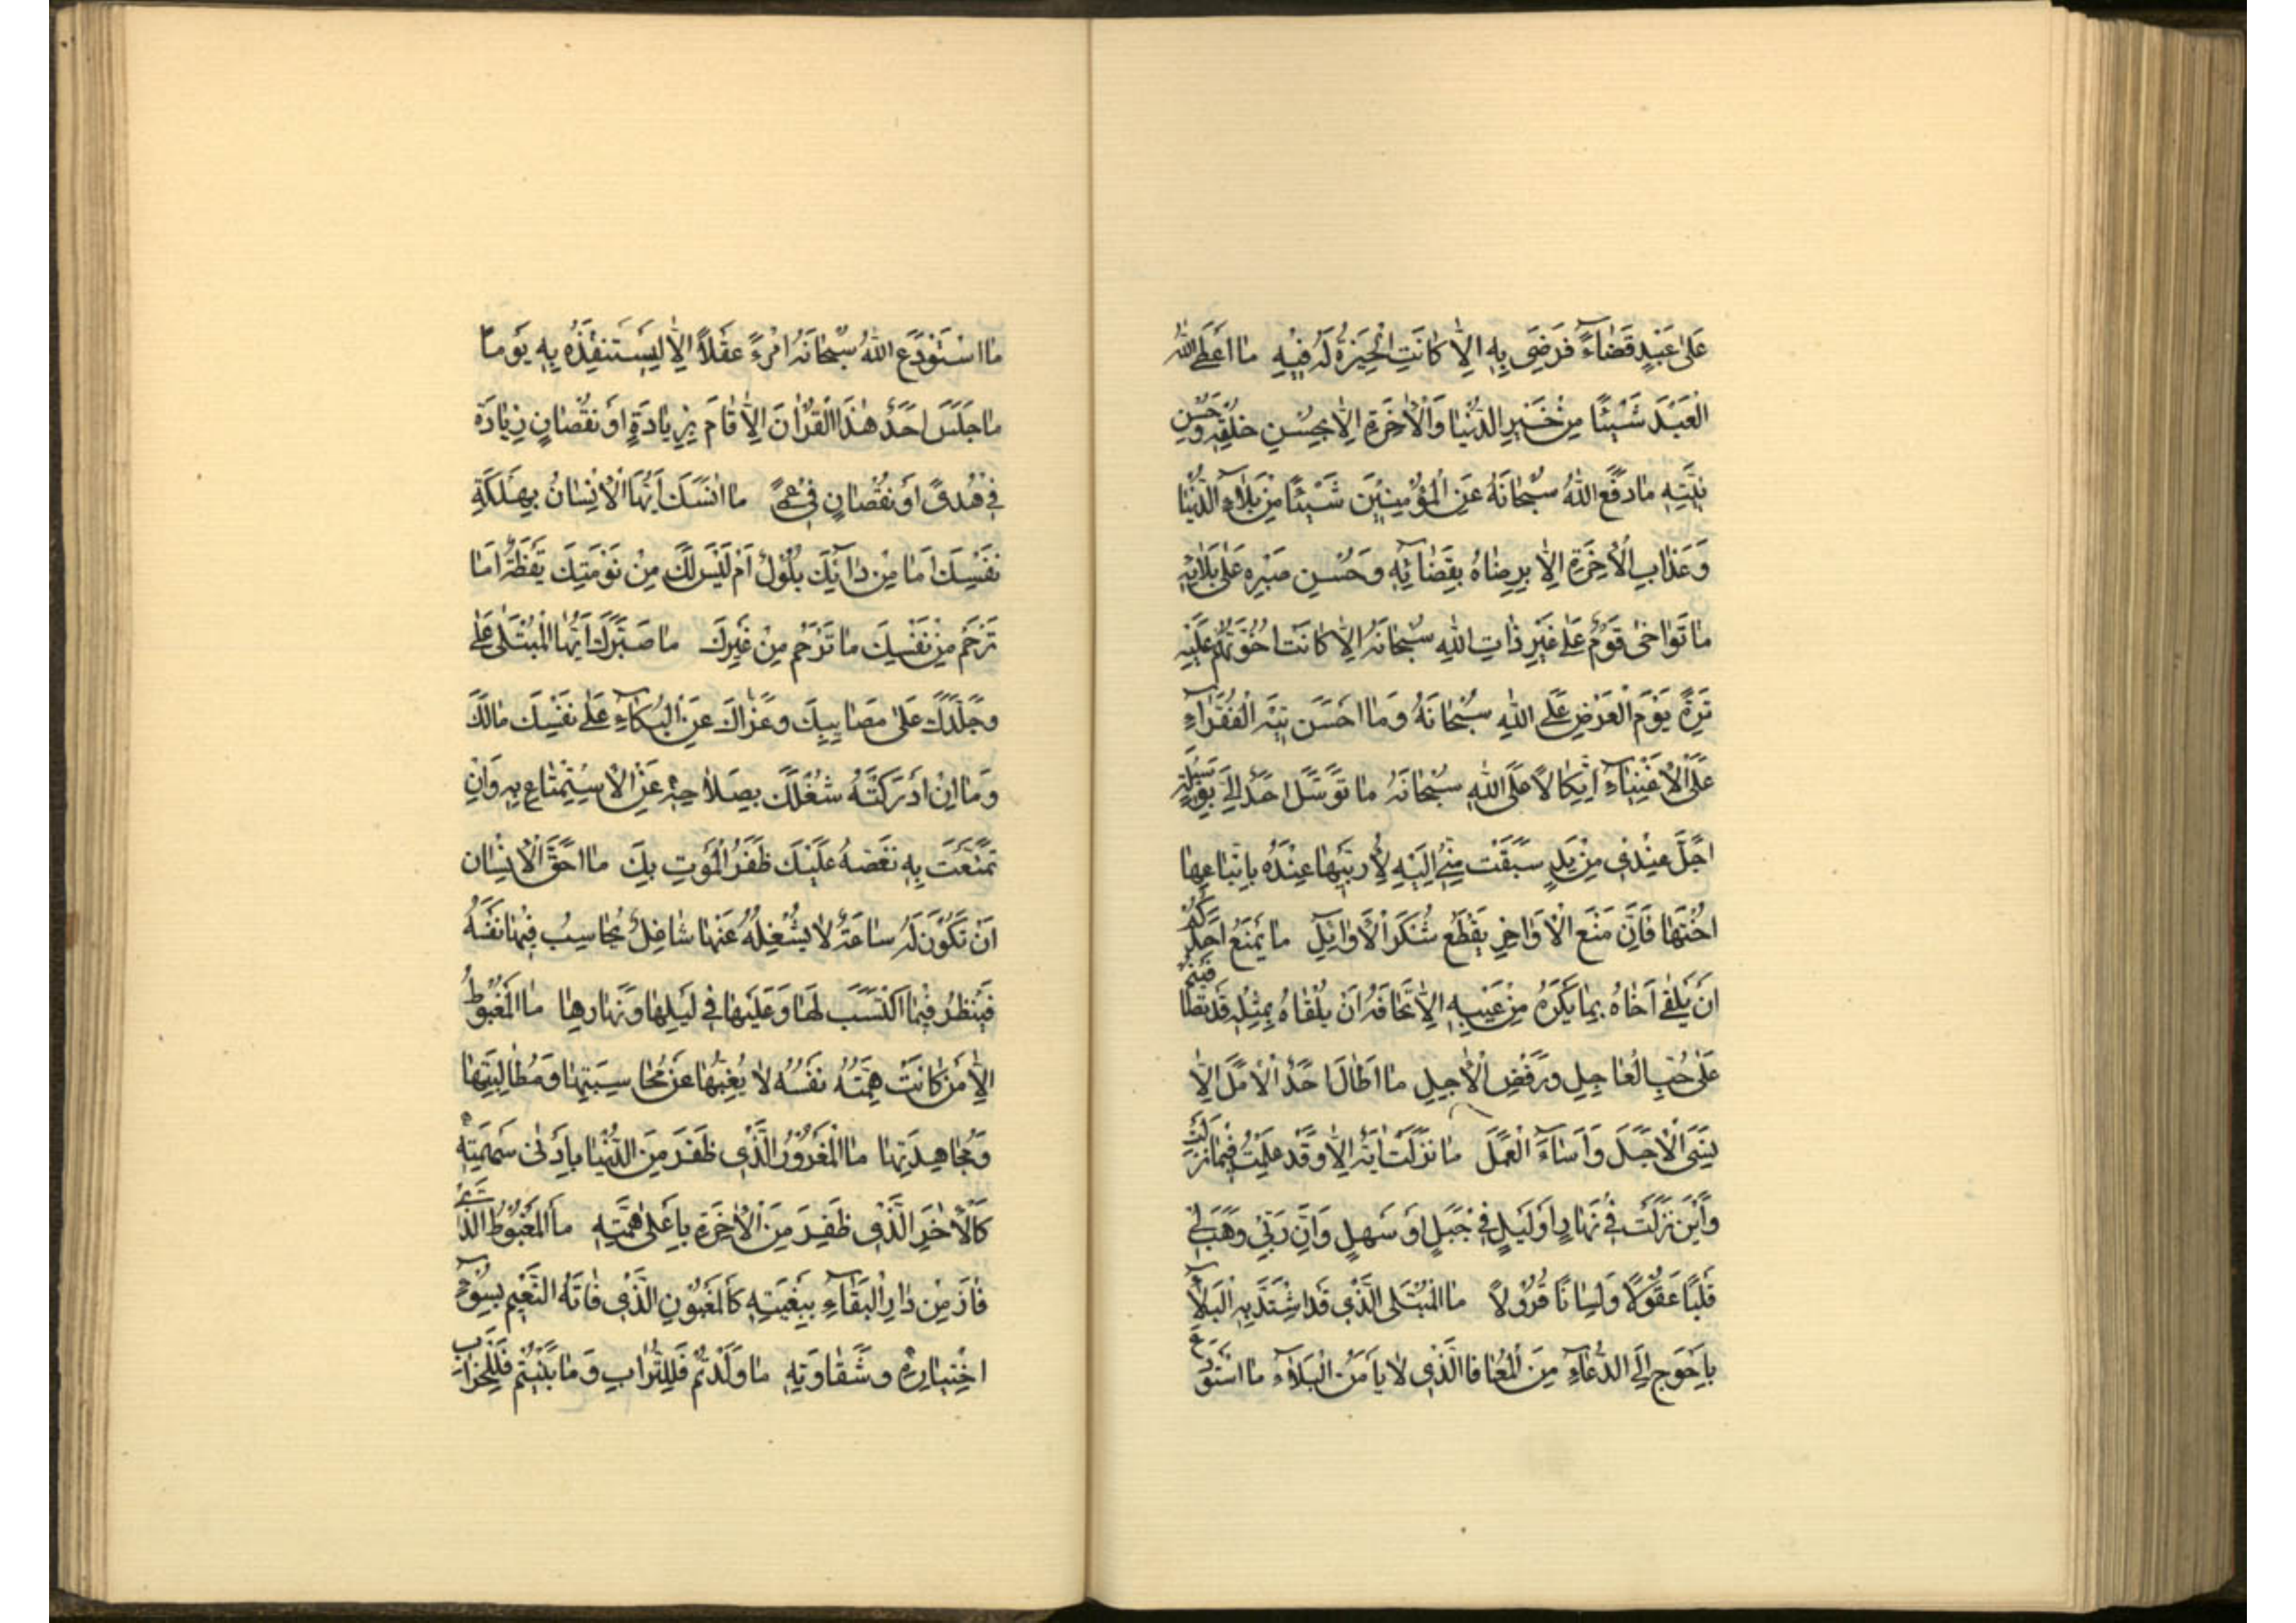 عَلىٰ عَبْدٍ قَضٰاءً فَرَضِىَ بِهِ اِلاّٰ كٰانَتِ الْخِيَرَةُ لَهُ فيٖهِ مٰا اَعْطَى اللّٰهُ
الْعَبْدَ شَيْئًا مِنْ خَيْرِ الدُّنْيٰا وَالْاٰخِرَةِ اِلاّٰ بِحُسْنِ خُلْقِهِ وَحُسْنِ
نِيَّتِهِ مٰا دَفَعَ اللّٰهُ سُبْحٰانَهُ عَنِ الْمُؤْمِنيٖنَ شَيْئًا مِنْ بَلٰاءِ الدُّنْيٰا
وَعَذٰابِ الْاٰخِرَةِ اِلاّٰ بِرِضٰاهُ بِقَضٰائِهِ وَحُسْنِ صَبْرِهِ عَلىٰ بَلٰائِهِ
مٰا تَوٰاخىٰ قَوْمٌ عَلىٰ غَيْرِ ذٰاتِ اللّٰهِ سُبْحٰانَهُ اِلاّٰ كٰانَتْ اُخُوَّتُهُمْ عَلَيْهِمْ
تِرَةً يَوْمَ الْعَرْضِ عَلَى اللّٰهِ سُبْحٰانَهُ وَمٰا اَحْسَنَ تيٖهَ الْفُقَرٰاءِ
عَلَى الْاَغْنِيٰاءِ اِتِّكٰالاً عَلَى اللّٰهِ سُبْحٰانَهُ مٰا تَوَسَّلَ اَحَدٌ اِلَىَّ بِوَسيٖلَةٍ
اَجَلَّ عِنْديٖ مِنْ يَدٍ سَبَقَتْ مِنّيٖ اِلَيْهِ لِاُرَبِّيَهٰا عِنْدَهُ بِاِتْبٰاعِهٰا
اُخْتَهٰا فَاِنَّ مَنْعَ الْاَوٰاخِرِ يَقْطَعُ شُكْرَ الْاَوٰائِلِ مٰا يَمْنَعُ اَحَدَكُمْ
اَنْ يَلْقىٰ اَخٰاهُ بِمٰا يَكْرَهُ مِنْ عَيْبِهِ اِلاّٰ مَخٰافَةُ اَنْ يَلْقٰاهُ بِمِثْلِهِ قَدْ تَصٰافَيْتُمْ
عَلىٰ حُبِّ الْعٰاجِلِ وَرَفْضِ الْاٰجِلِ مٰا اَطٰالَ اَحَدٌ الْاَمَلَ اِلاّٰ
نَسِىَ الْاَجَلَ وَاَسٰاءَ الْعَمَلَ مٰا نَزَلَتْ اٰيَةٌ اِلاّٰ وَقَدْ عَلِمْتُ فيٖمٰا نَزَلَتْ
وَاَيْنَ نَزَلَتْ فيٖ نَهٰارٍ اَوْ لَيْلٍ فيٖ جَبَلٍ اَوْ سَهْلٍ وَاِنَّ رَبّيٖ وَهَبَ ليٖ
قَلْبًا عَقُولاً وَلِسٰانًا قَؤُولاً مٰا الْمُبْتَلَى الَّذيٖ قَدِ اشْتَدَّ بِهِ الْبَلٰاءُ
بِاَحْوَجَ اِلَى الدُّعٰاءِ مِنَ الْمُعٰافَا الَّذيٖ لاٰ يَأْمَنُ الْبَلٰاءَ مٰا اسْتَوْدَعَ
مٰا اسْتَوْدَعَ اللّٰهُ سُبْحٰانَهُ امْرَءً عَقْلاً اِلاّٰ لِيَسْتَنْقِذَهُ بِهِ يَوْمًا
مٰا جٰلَسَ اَحَدٌ هٰذَا الْقُرْاٰنَ اِلاّٰ قٰامَ بِزِيٰادَةٍ اَوْ نُقْصٰانٍ زِيٰادَةٍ
فيٖ هُدىً اَوْ نُقْصٰانٍ فيٖ عَمىً مٰا اَنَّسَكَ اَيُّهَا الْاِنْسٰانُ بِهَلَكَةِ
نَفْسِكَ اَمٰا مِنْ دٰائِكَ بُلُولٌ اَمْ لَيْسَ لَكَ مِنْ نَوْمَتِكَ يَقَظَةٌ اَمٰا
تَرْحَمُ مِنْ نَفْسِكَ مٰا تَرْحَمُ مِنْ غَيْرِكَ مٰا صَبَّرَكَ اَيُّهَا الْمُبْتَلىٰ عَلىٰ
وَجَلَّدَكَ عَلىٰ مَصٰايِبِكَ وَعَزّٰاكَ عَنِ الْبُكٰاءِ عَلىٰ نَفْسِكَ مٰا لَكَ
وَمٰا اِنْ اَدْرَكْتَهُ شَغَلَكَ بِصَلٰاحِهِ عَنِ الْاِسْتِمْتٰاعِ بِهِ وَاِنْ
تَمَتَّعْتَ بِهِ نَغَّصَهُ عَلَيْكَ ظَفَرُ الْمَوْتِ بِكَ مٰا اَحَقَّ الْاِنْسٰانَ
اَنْ تَكُونَ لَهُ سٰاعَةٌ لاٰ يَشْغَلُهُ عَنْهٰا شٰاغِلٌ يُحٰاسِبُ فيٖهٰا نَفْسَهُ
فَيَنْظُرُ فيٖمَا اكْتَسَبَ لَهٰا وَعَلَيْهٰا فيٖ لَيْلِهٰا وَنَهٰارِهٰا مَا الْمَغْبُوطُ
اِلاّٰ مَنْ كٰانَتْ هِمَّتُهُ نَفْسَهُ لاٰ يُغِبُّهٰا عَنْ مُحٰاسَبَتِهٰا وَمُطٰالَبَتِهٰا
وَمُجٰاهَدَتِهٰا مَا الْمَغْرُورُ الَّذيٖ ظَفَرَ مِنَ الدُّنْيٰا بِاَدْنىٰ سَهْمَتِهِ
كَالْاٰخَرِ الَّذيٖ ظَفِرَ مِنَ الْاٰخِرَةِ بِاَعْلىٰ هِمَّتِهِ مَا الْمَغْبُوطُ الَّذيٖ
فٰازَ مِنْ دٰارِ الْبَقٰاءِ بِبُغْيَتِهِ كَالْمَغْبُونِ الَّذيٖ فٰاتَهُ النَّعيٖمُ بِسُوءِ
اخْتِيٰارِهِ وَشَقٰاوَتِهِ مٰا وَلَدْتُمْ فَلِلتُّرٰابِ وَمٰا بَنَيْتُمْ فَلِلْخَرٰابِ